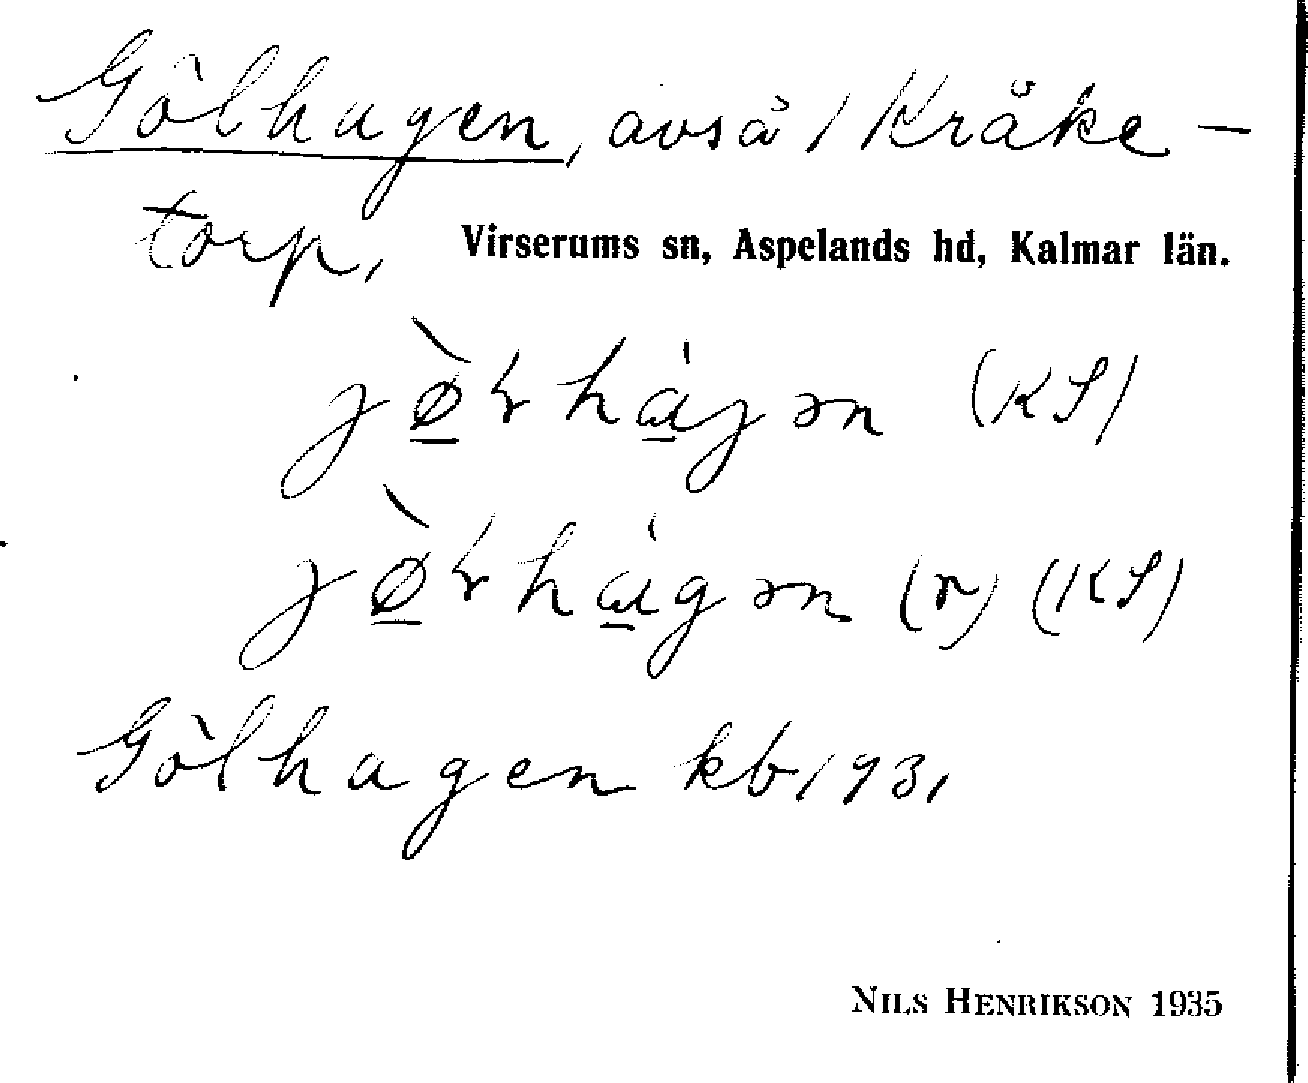 Gölhagen, avså / Kråke-
torp, Virserums sn, Aspelands hd, Kalmar län.
(KS)
(r) (KS)
Gölhagen kb 1931
NILS HENRIKSON 1935